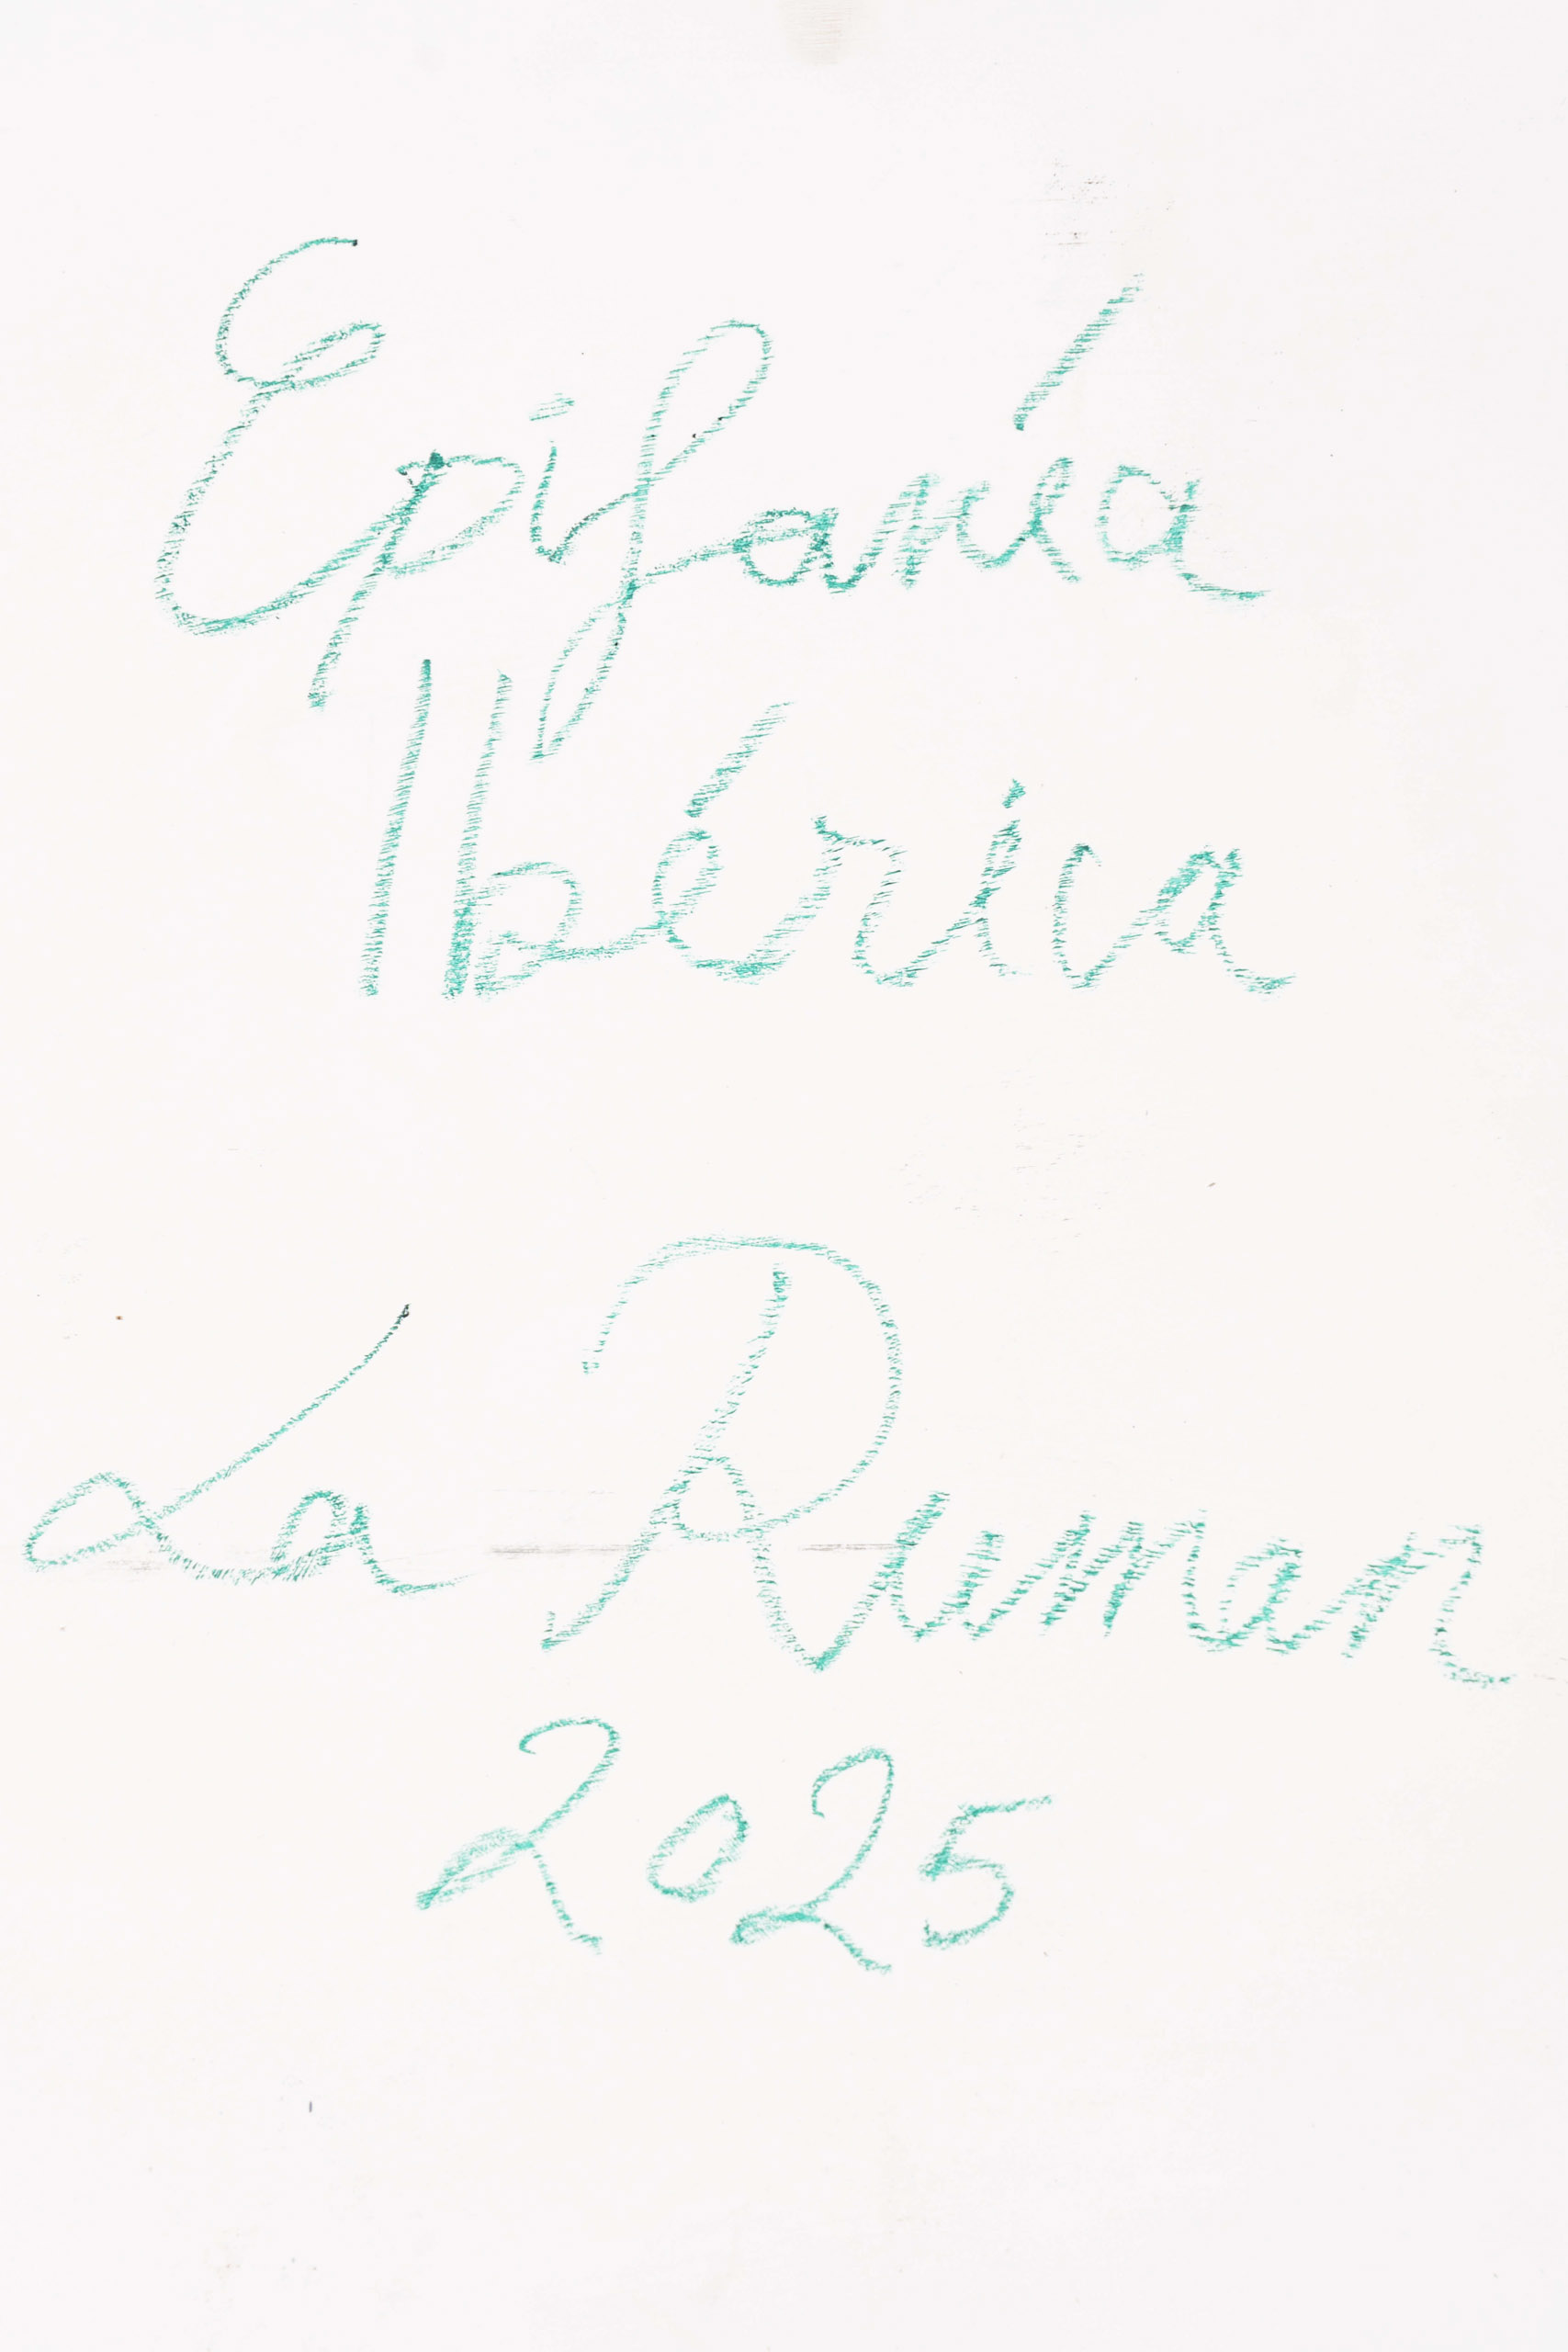 Epifanía
Ibérica
La Ruman
2025